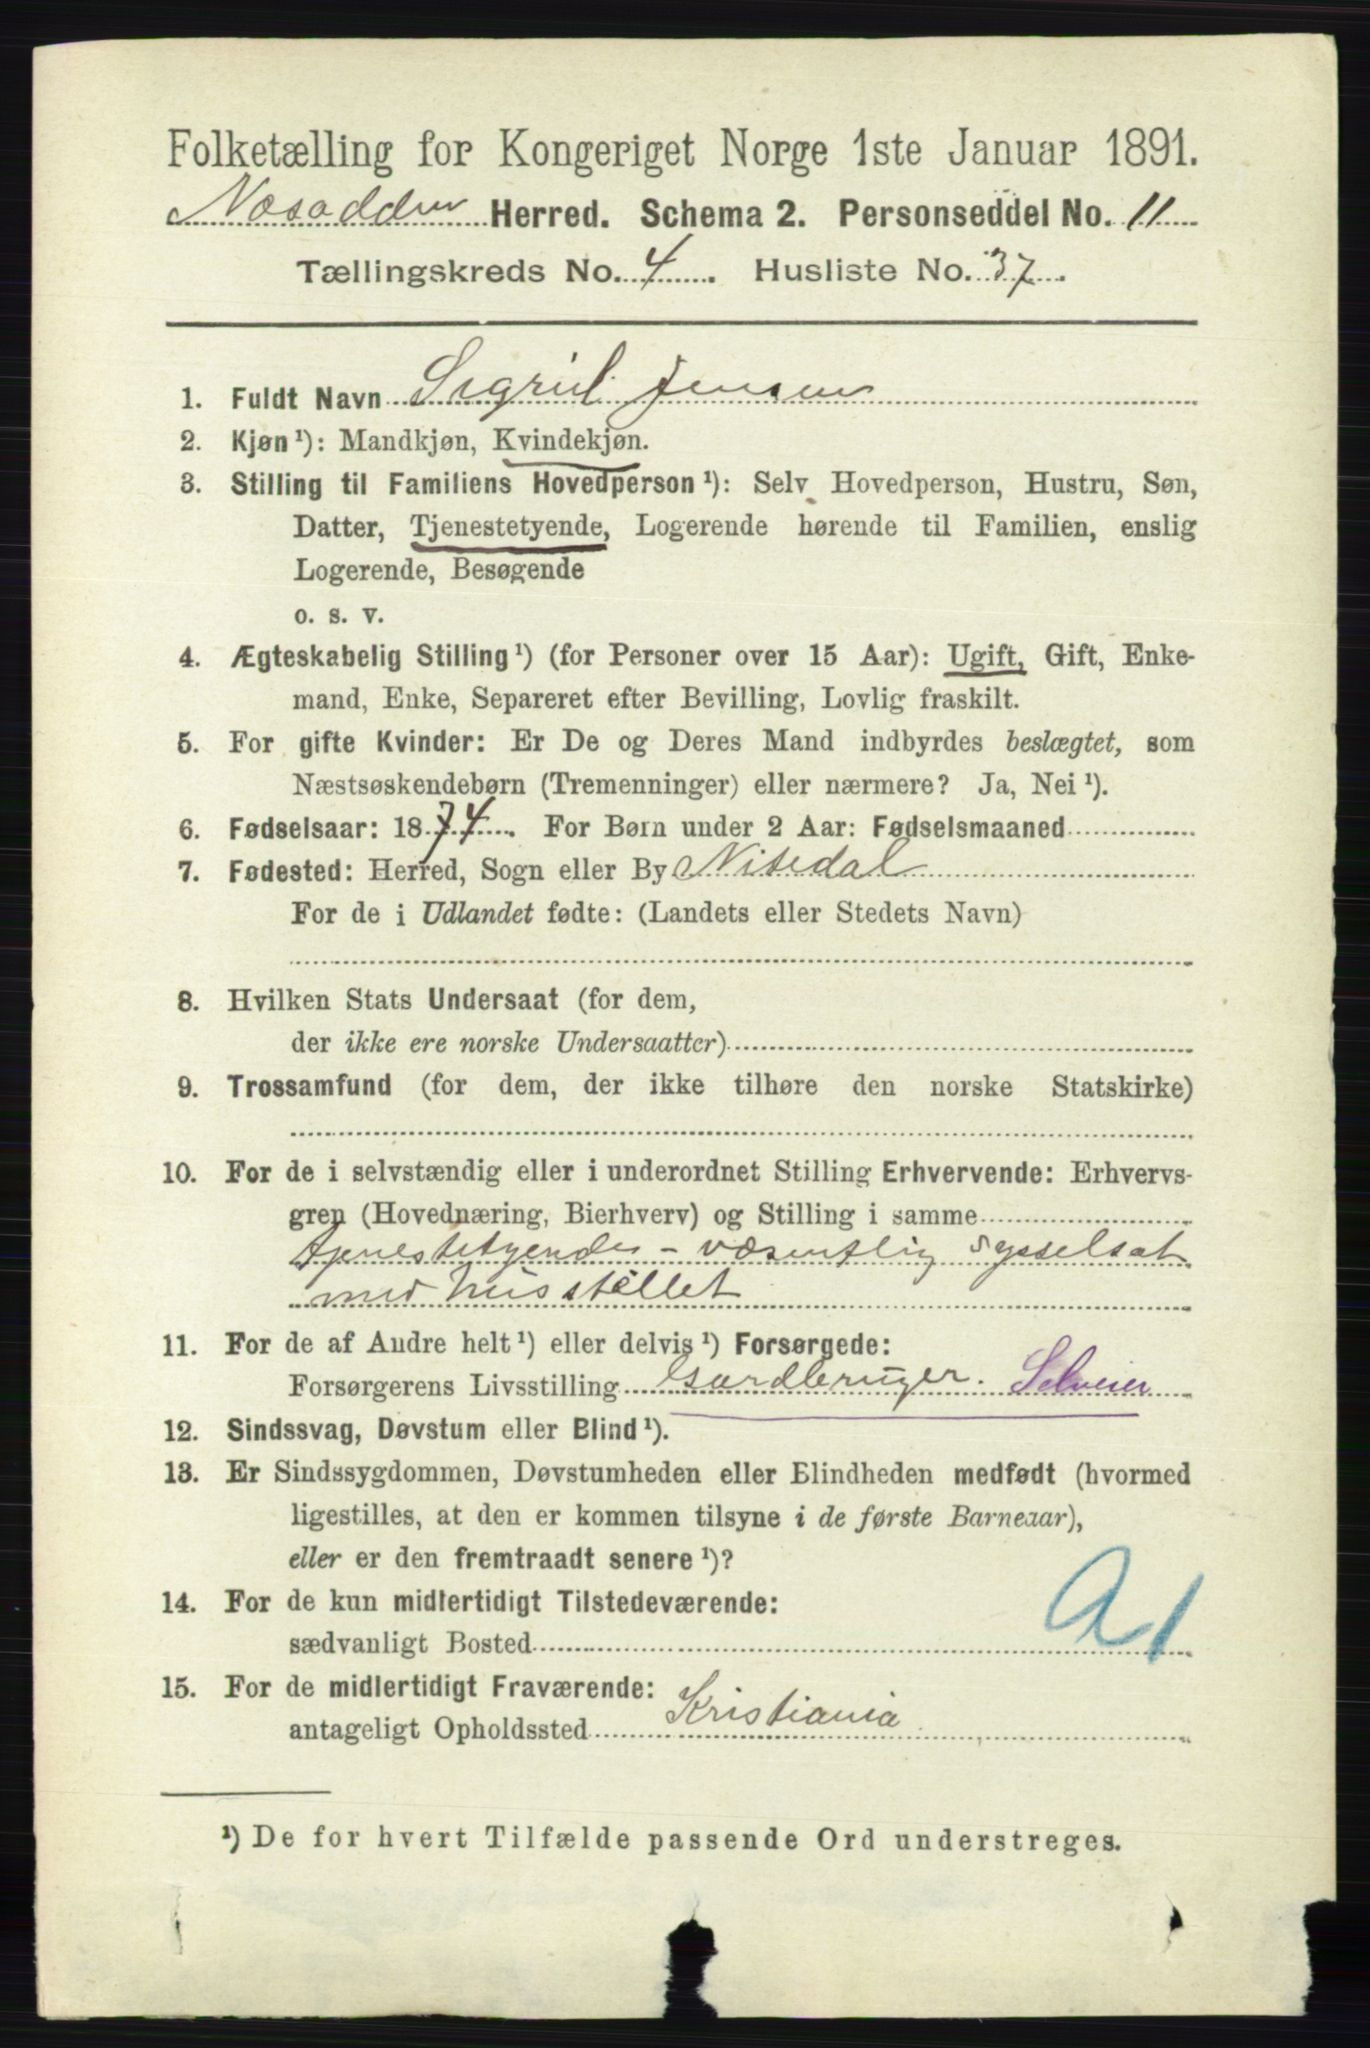 Folketælling for Kongeriget Norge 1ste Januar 1891.
Næsodden Herred. Schema 2. Personseddel No. 11
Tællingskreds No. 4. Husliste No. 37.
1. Fuldt Navn Sigrid Jensen
2. Kjøn ¹): Mandkjøn, Kvindekjøn.
3. Stilling til Familiens Hovedperson ¹): Selv Hovedperson, Hustru, Søn,
Datter, Tjenestetyende, Logerende hørende til Familien, enslig
Logerende, Besøgende
o. s. v.
4. Ægteskabelig Stilling ¹) (for Personer over 15 Aar): Ugift, Gift, Enke-
mand, Enke, Separeret efter Bevilling, Lovlig fraskilt.
5. For gifte Kvinder: Er De og Deres Mand indbyrdes beslægtet, som
Næstsøskendebørn (Tremenninger) eller nærmere? Ja, Nei ¹).
6. Fødselsaar: 1874. For Børn under 2 Aar: Fødselsmaaned
7. Fødested: Herred, Sogn eller By Nitedal
For de i Udlandet fødte: (Landets eller Stedets Navn)
8. Hvilken Stats Undersaat (for dem,
der ikke ere norske Undersaatter)
9. Trossamfund (for dem, der ikke tilhøre den norske Statskirke)
10. For de i selvstændig eller i underordnet Stilling Erhvervende: Erhvervs-
gren (Hovednæring, Bierhverv) og Stilling i samme
tjenestetyende - væsentlig sysselsat
med husstellet
11. For de af Andre helt ¹) eller delvis ¹) Forsørgede:
Forsørgerens Livsstilling Gardbruger. Selveier
12. Sindssvag, Døvstum eller Blind ¹).
13. Er Sindssygdommen, Døvstumheden eller Blindheden medfødt (hvormed
ligestilles, at den er kommen tilsyne i de første Barneaar),
eller er den fremtraadt senere ¹)?
14. For de kun midlertidigt Tilstedeværende:
sædvanligt Bosted
A1
15. For de midlertidigt Fraværende:
antageligt Opholdssted Kristiania
¹) De for hvert Tilfælde passende Ord understreges.